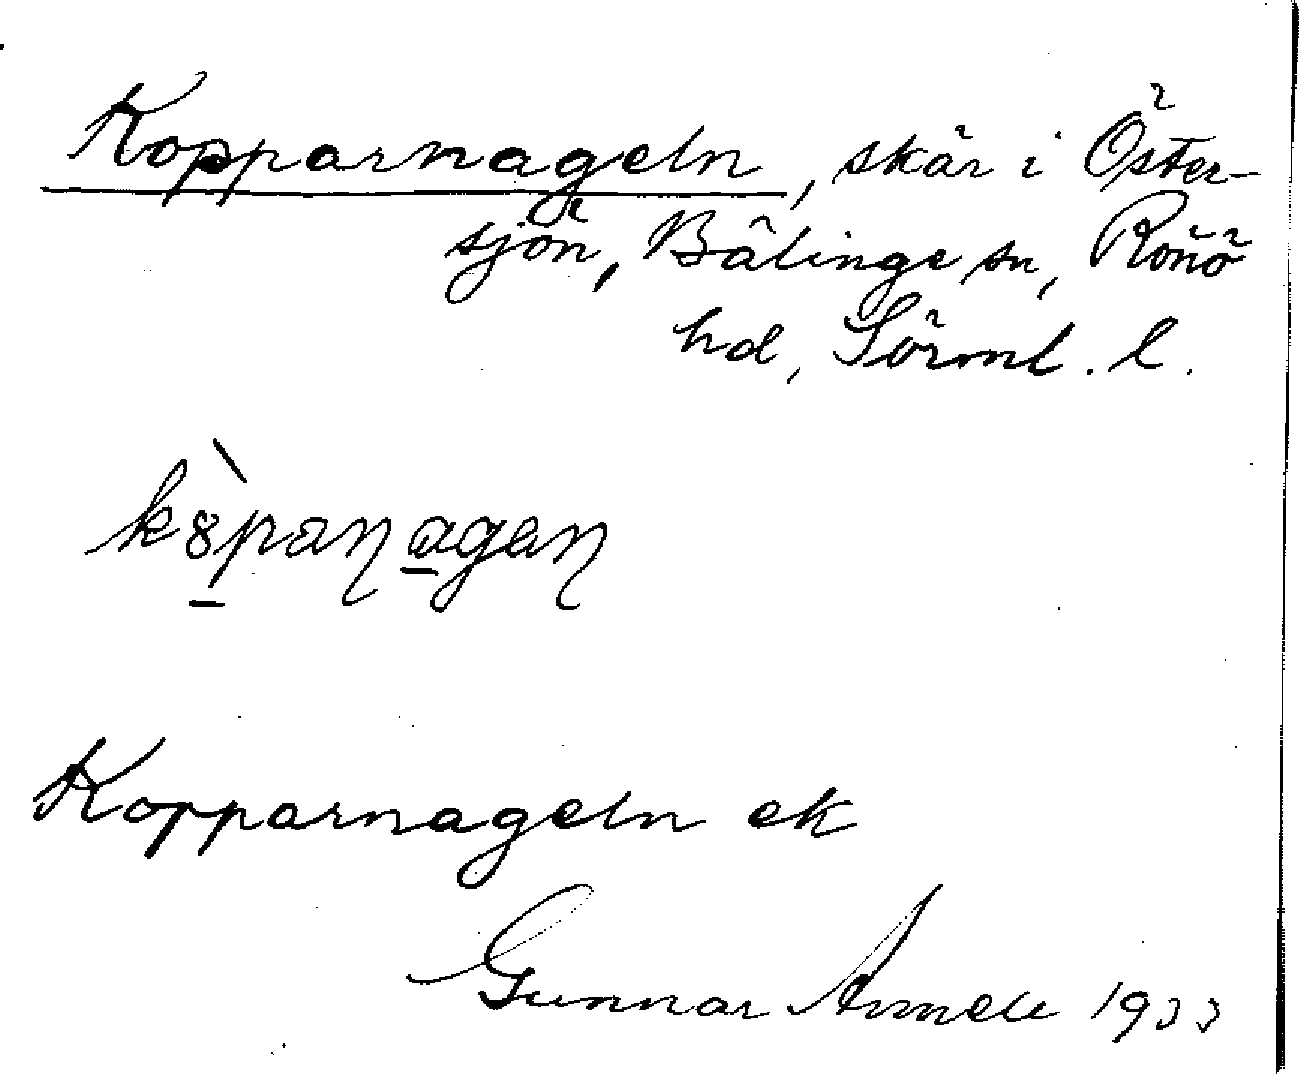 Kopparnageln, skär i Öster-
sjön, Bälinge sn, Rönö
hd, Sörml. l.
kòpaṇagaṇ
Kopparnageln ek
Gunnar Armele 1933